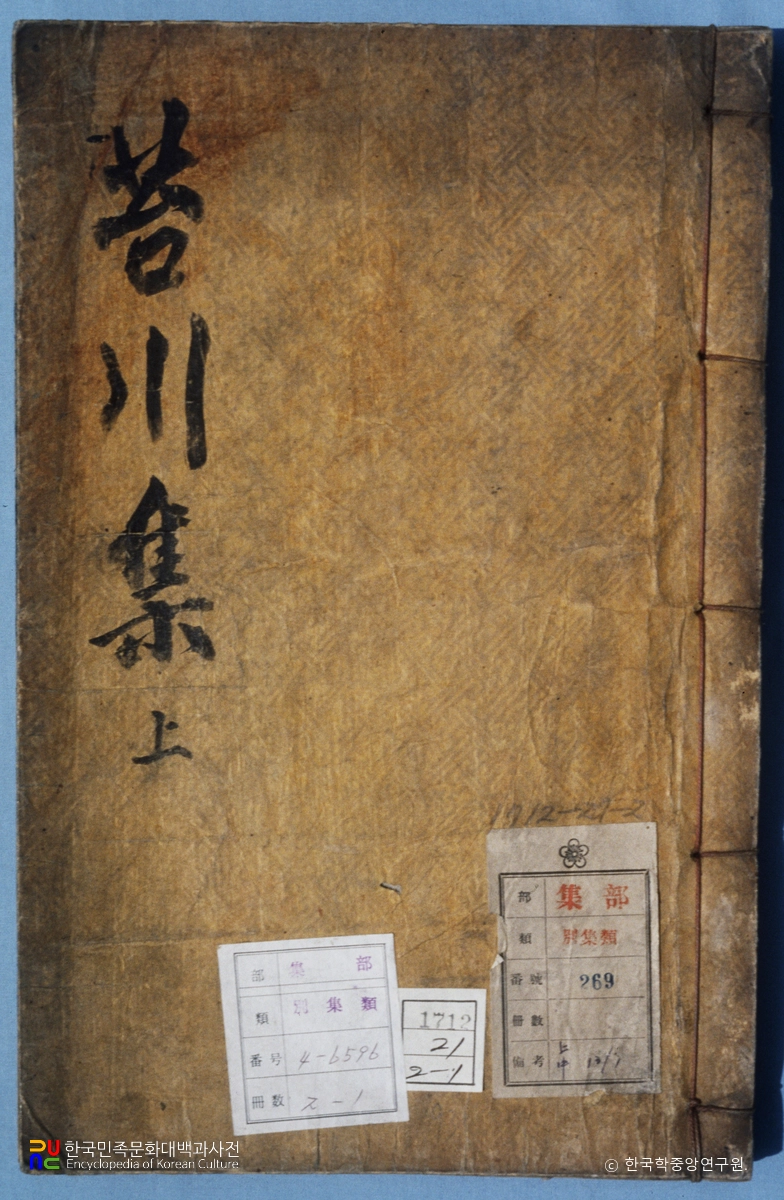 苔川集 上
1712-21-2
部 集部
類 別集類
番號 269
冊數
備考 上
部 集部
類 別集類
番号 4-6596
冊数 2-1
1712
21
2-1
한국민족문화대백과사전
Encyclopedia of Korean Culture
© 한국학중앙연구원